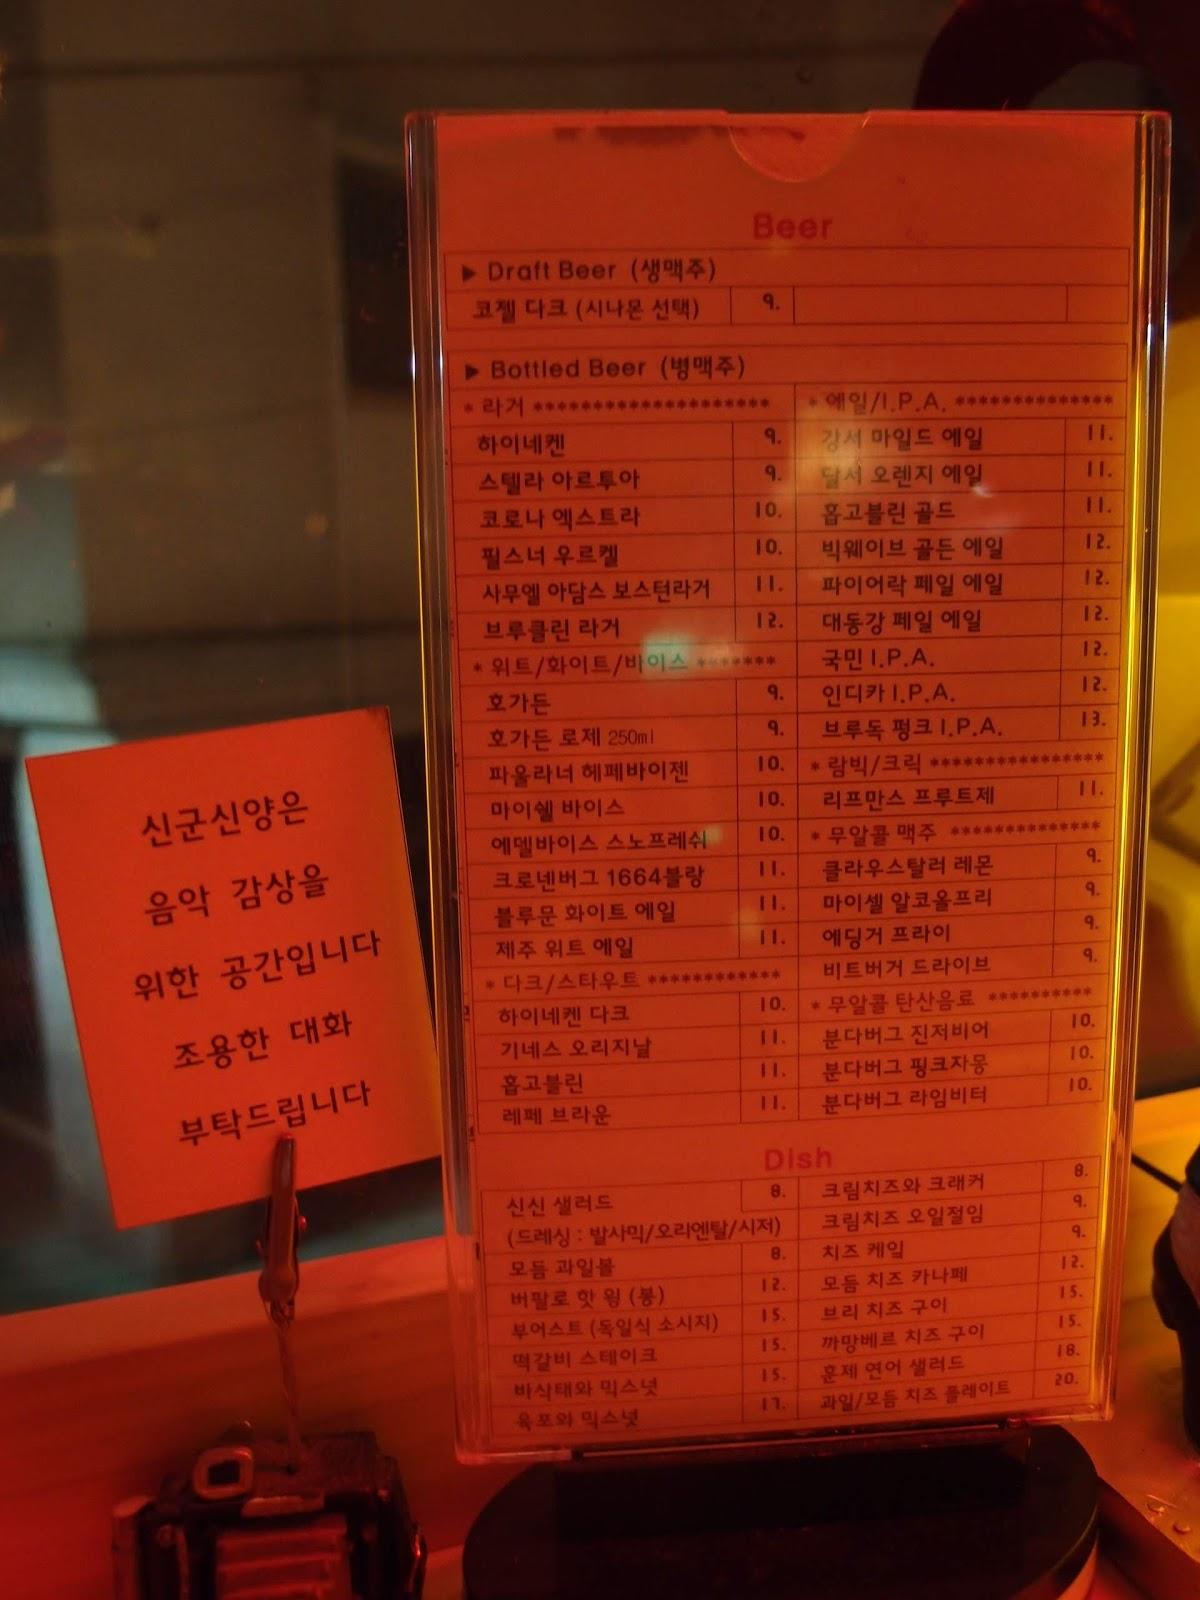 신군신양은
음악 감상을
위한 공간입니다
조용한 대화
부탁드립니다
Beer
▶ Draft Beer (생맥주)
코젤 다크 (시나몬 선택) 9.
▶ Bottled Beer (병맥주)
* 라거 ********************
하이네켄 9.
스텔라 아르투아 9.
코로나 엑스트라 10.
필스너 우르켈 10.
사무엘 아담스 보스턴라거 11.
브루클린 라거 12.
* 위트/화이트/바이스 *******
호가든 9.
호가든 로제 250ml 9.
파울라너 헤페바이젠 10.
마이쉘 바이스 10.
에델바이스 스노프레쉬 10.
크로넨버그 1664블랑 11.
블루문 화이트 에일 11.
제주 위트 에일 11.
* 다크/스타우트 ************
하이네켄 다크 10.
기네스 오리지날 11.
홉고블린 11.
레페 브라운 11.
* 에일/I.P.A. **************
강서 마일드 에일 11.
달서 오렌지 에일 11.
홉고블린 골드 11.
빅웨이브 골든 에일 12.
파이어락 페일 에일 12.
대동강 페일 에일 12.
국민 I.P.A. 12.
인디카 I.P.A. 12.
브루독 펑크 I.P.A. 13.
* 람빅/크릭 ****************
리프만스 프루트제 11.
* 무알콜 맥주 **************
클라우스탈러 레몬 9.
마이셀 알코올프리 9.
에딩거 프라이 9.
비트버거 드라이브 9.
* 무알콜 탄산음료 **********
분다버그 진저비어 10.
분다버그 핑크자몽 10.
분다버그 라임비터 10.
Dish
신신 샐러드 8.
(드레싱 : 발사믹/오리엔탈/시저)
모듬 과일볼 8.
버팔로 핫 윙 (봉) 12.
부어스트 (독일식 소시지) 15.
떡갈비 스테이크 15.
바식태와 믹스넛 15.
육포와 믹스넛 17.
크림치즈와 크래커 8.
크림치즈 오일절임 9.
치즈 케잌 9.
모듬 치즈 카나페 12.
브리 치즈 구이 15.
까망베르 치즈 구이 15.
훈제 연어 샐러드 18.
과일/모듬 치즈 플레이트 20.